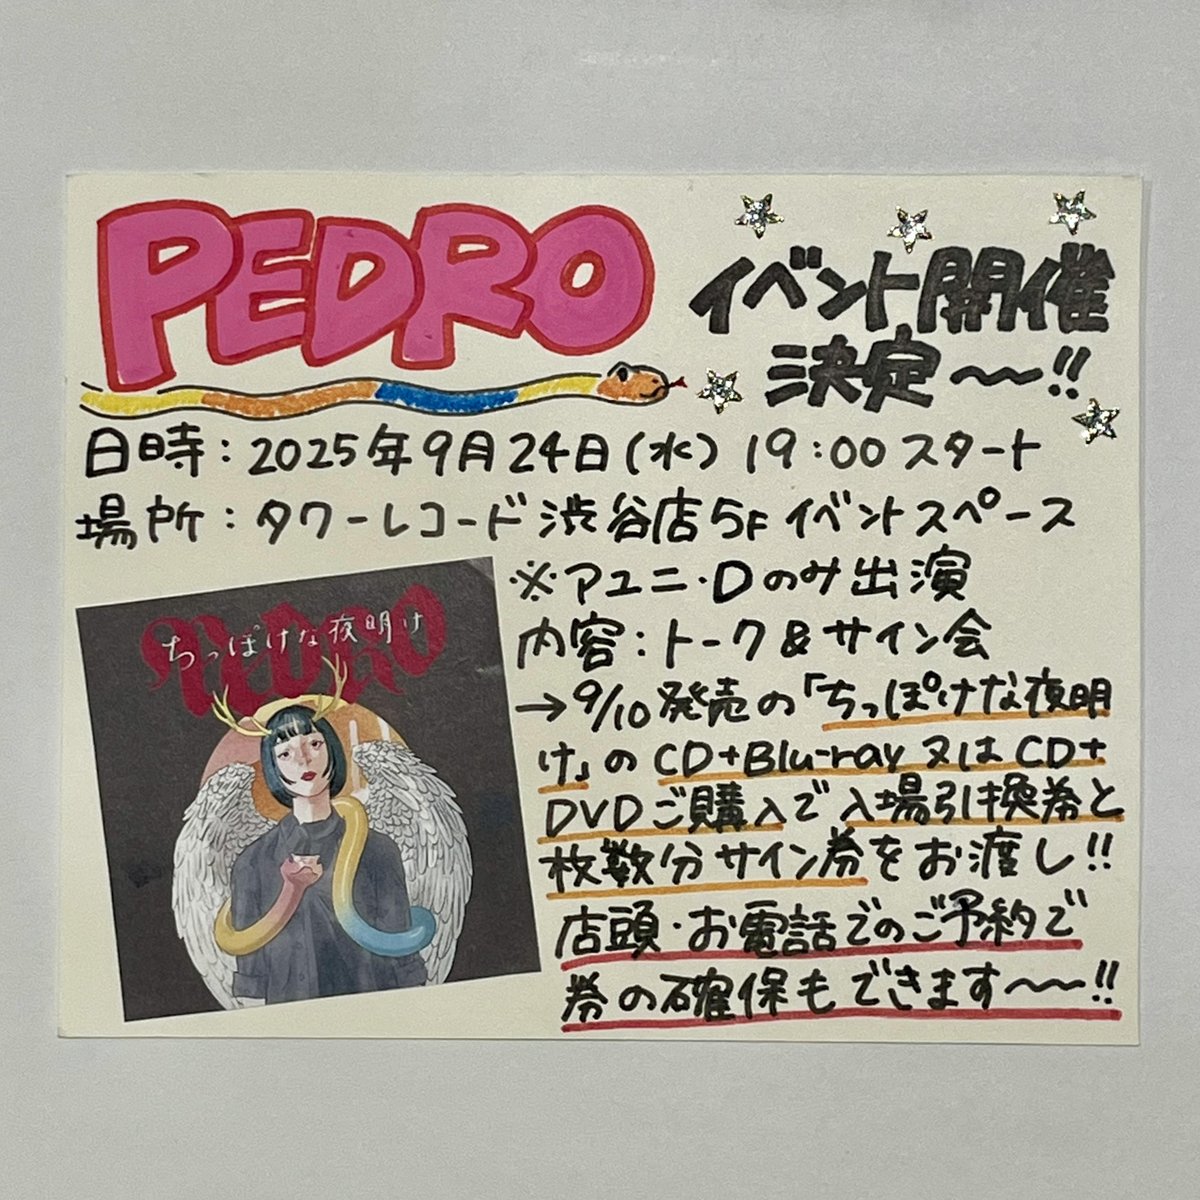 PEDRO
イベント開催
決定〜!!
日時:2025年9月24日(水) 19:00スタート
場所:タワーレコード渋谷店5Fイベントスペース
※アユニ・Dのみ出演
内容:トーク&サイン会
→9/10発売の「ちっぽけな夜明
け」のCD+Blu-ray又はCD+
DVDご購入で入場引換券と
枚数分サイン券をお渡し!!
店頭・お電話でのご予約で
券の確保もできます〜〜!!
PEDRO
ちっぽけな夜明け